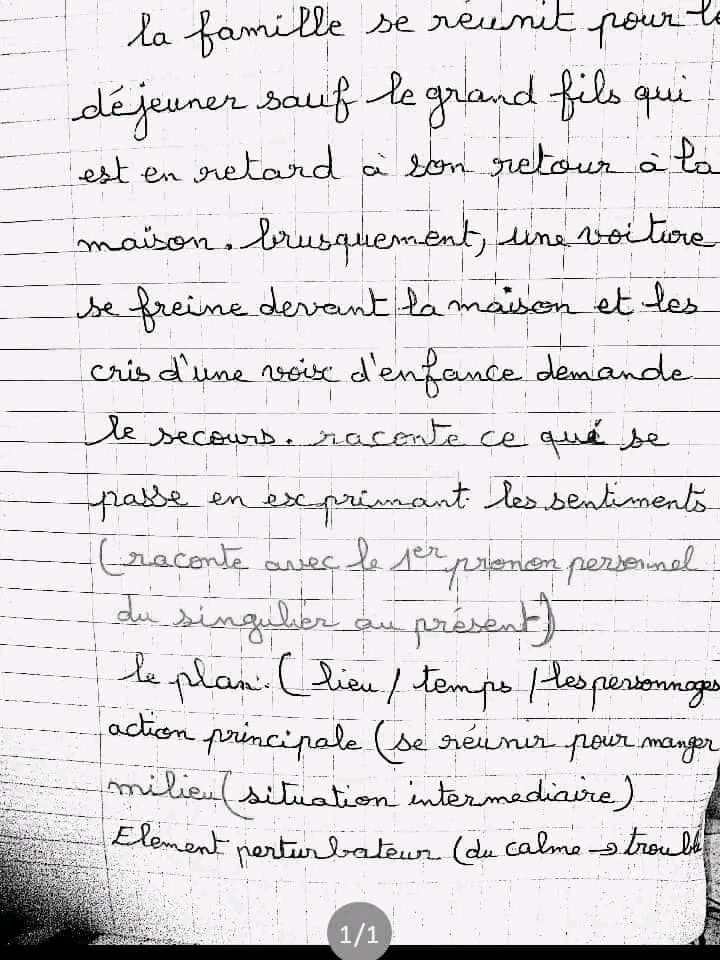 la famille se réunit pour le
déjeuner sauf le grand fils qui
est en retard à son retour à la
maison. brusquement, une voiture
se freine devant la maison et les
cris d'une voix d'enfance demande
le secours. raconte ce qui se
passe en exprimant les sentiments
(raconte avec le 1er pronon personnel
du singulier au présent)
le plan: (lieu / temps / les personnages
action principale (se réunir pour manger
milieu (situation intermediaire)
Element perturbateur (du calme → troubl
1/1